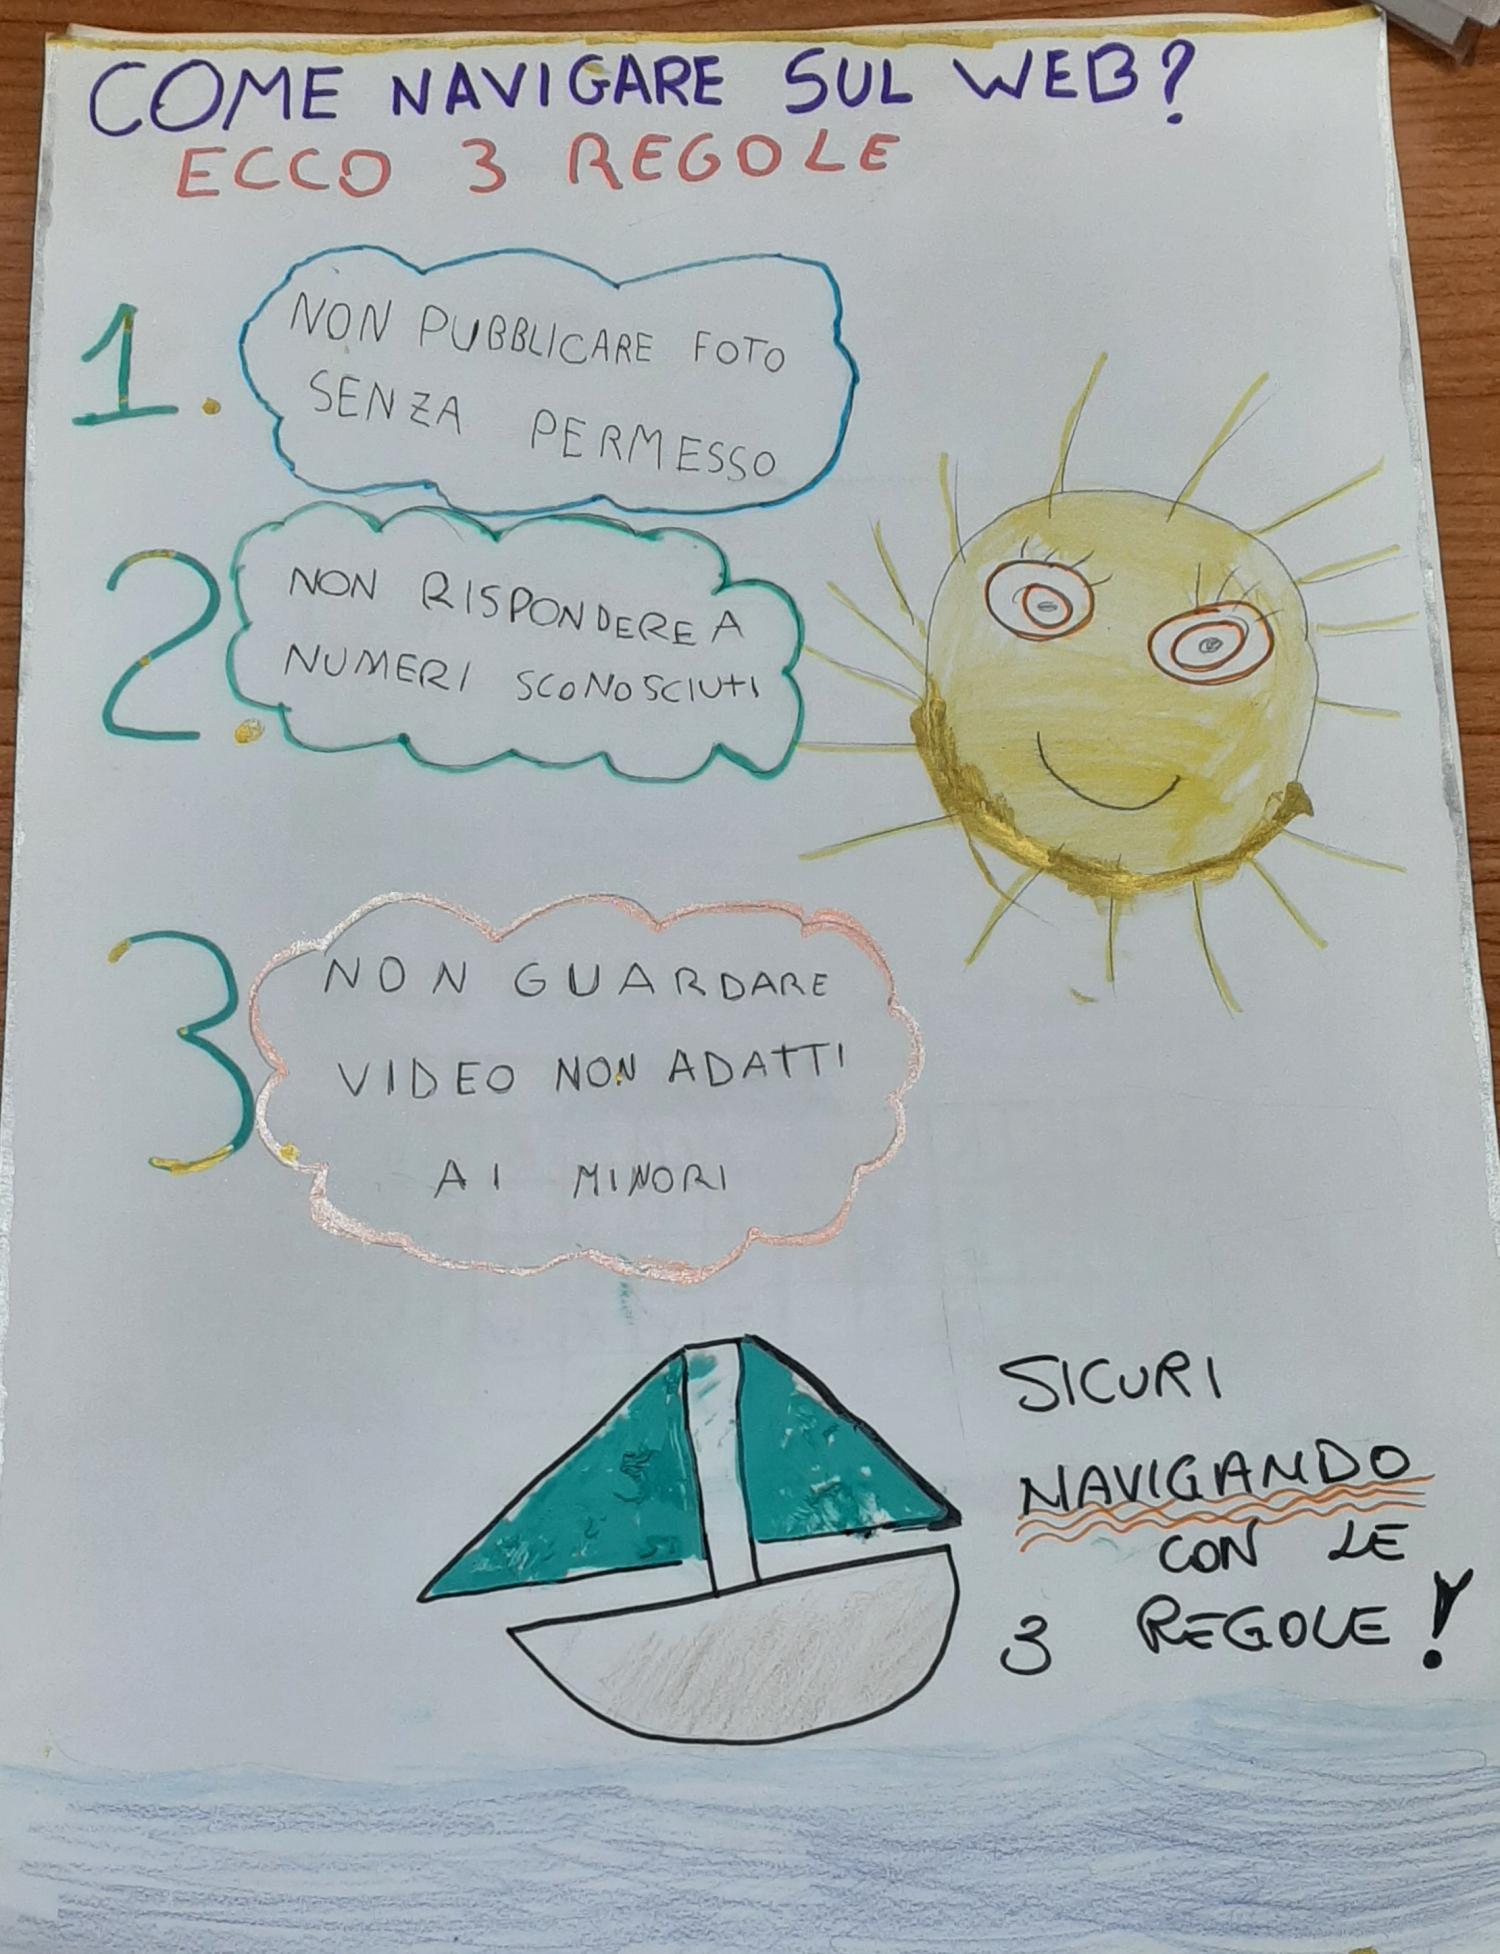 COME NAVIGARE SUL WEB?
ECCO 3 REGOLE
1.
NON PUBBLICARE FOTO
SENZA PERMESSO
2.
NON RISPONDERE A
NUMERI SCONOSCIUTI
3
NON GUARDARE
VIDEO NON ADATTI
AI MINORI
SICURI
NAVIGANDO
CON LE
3 REGOLE!